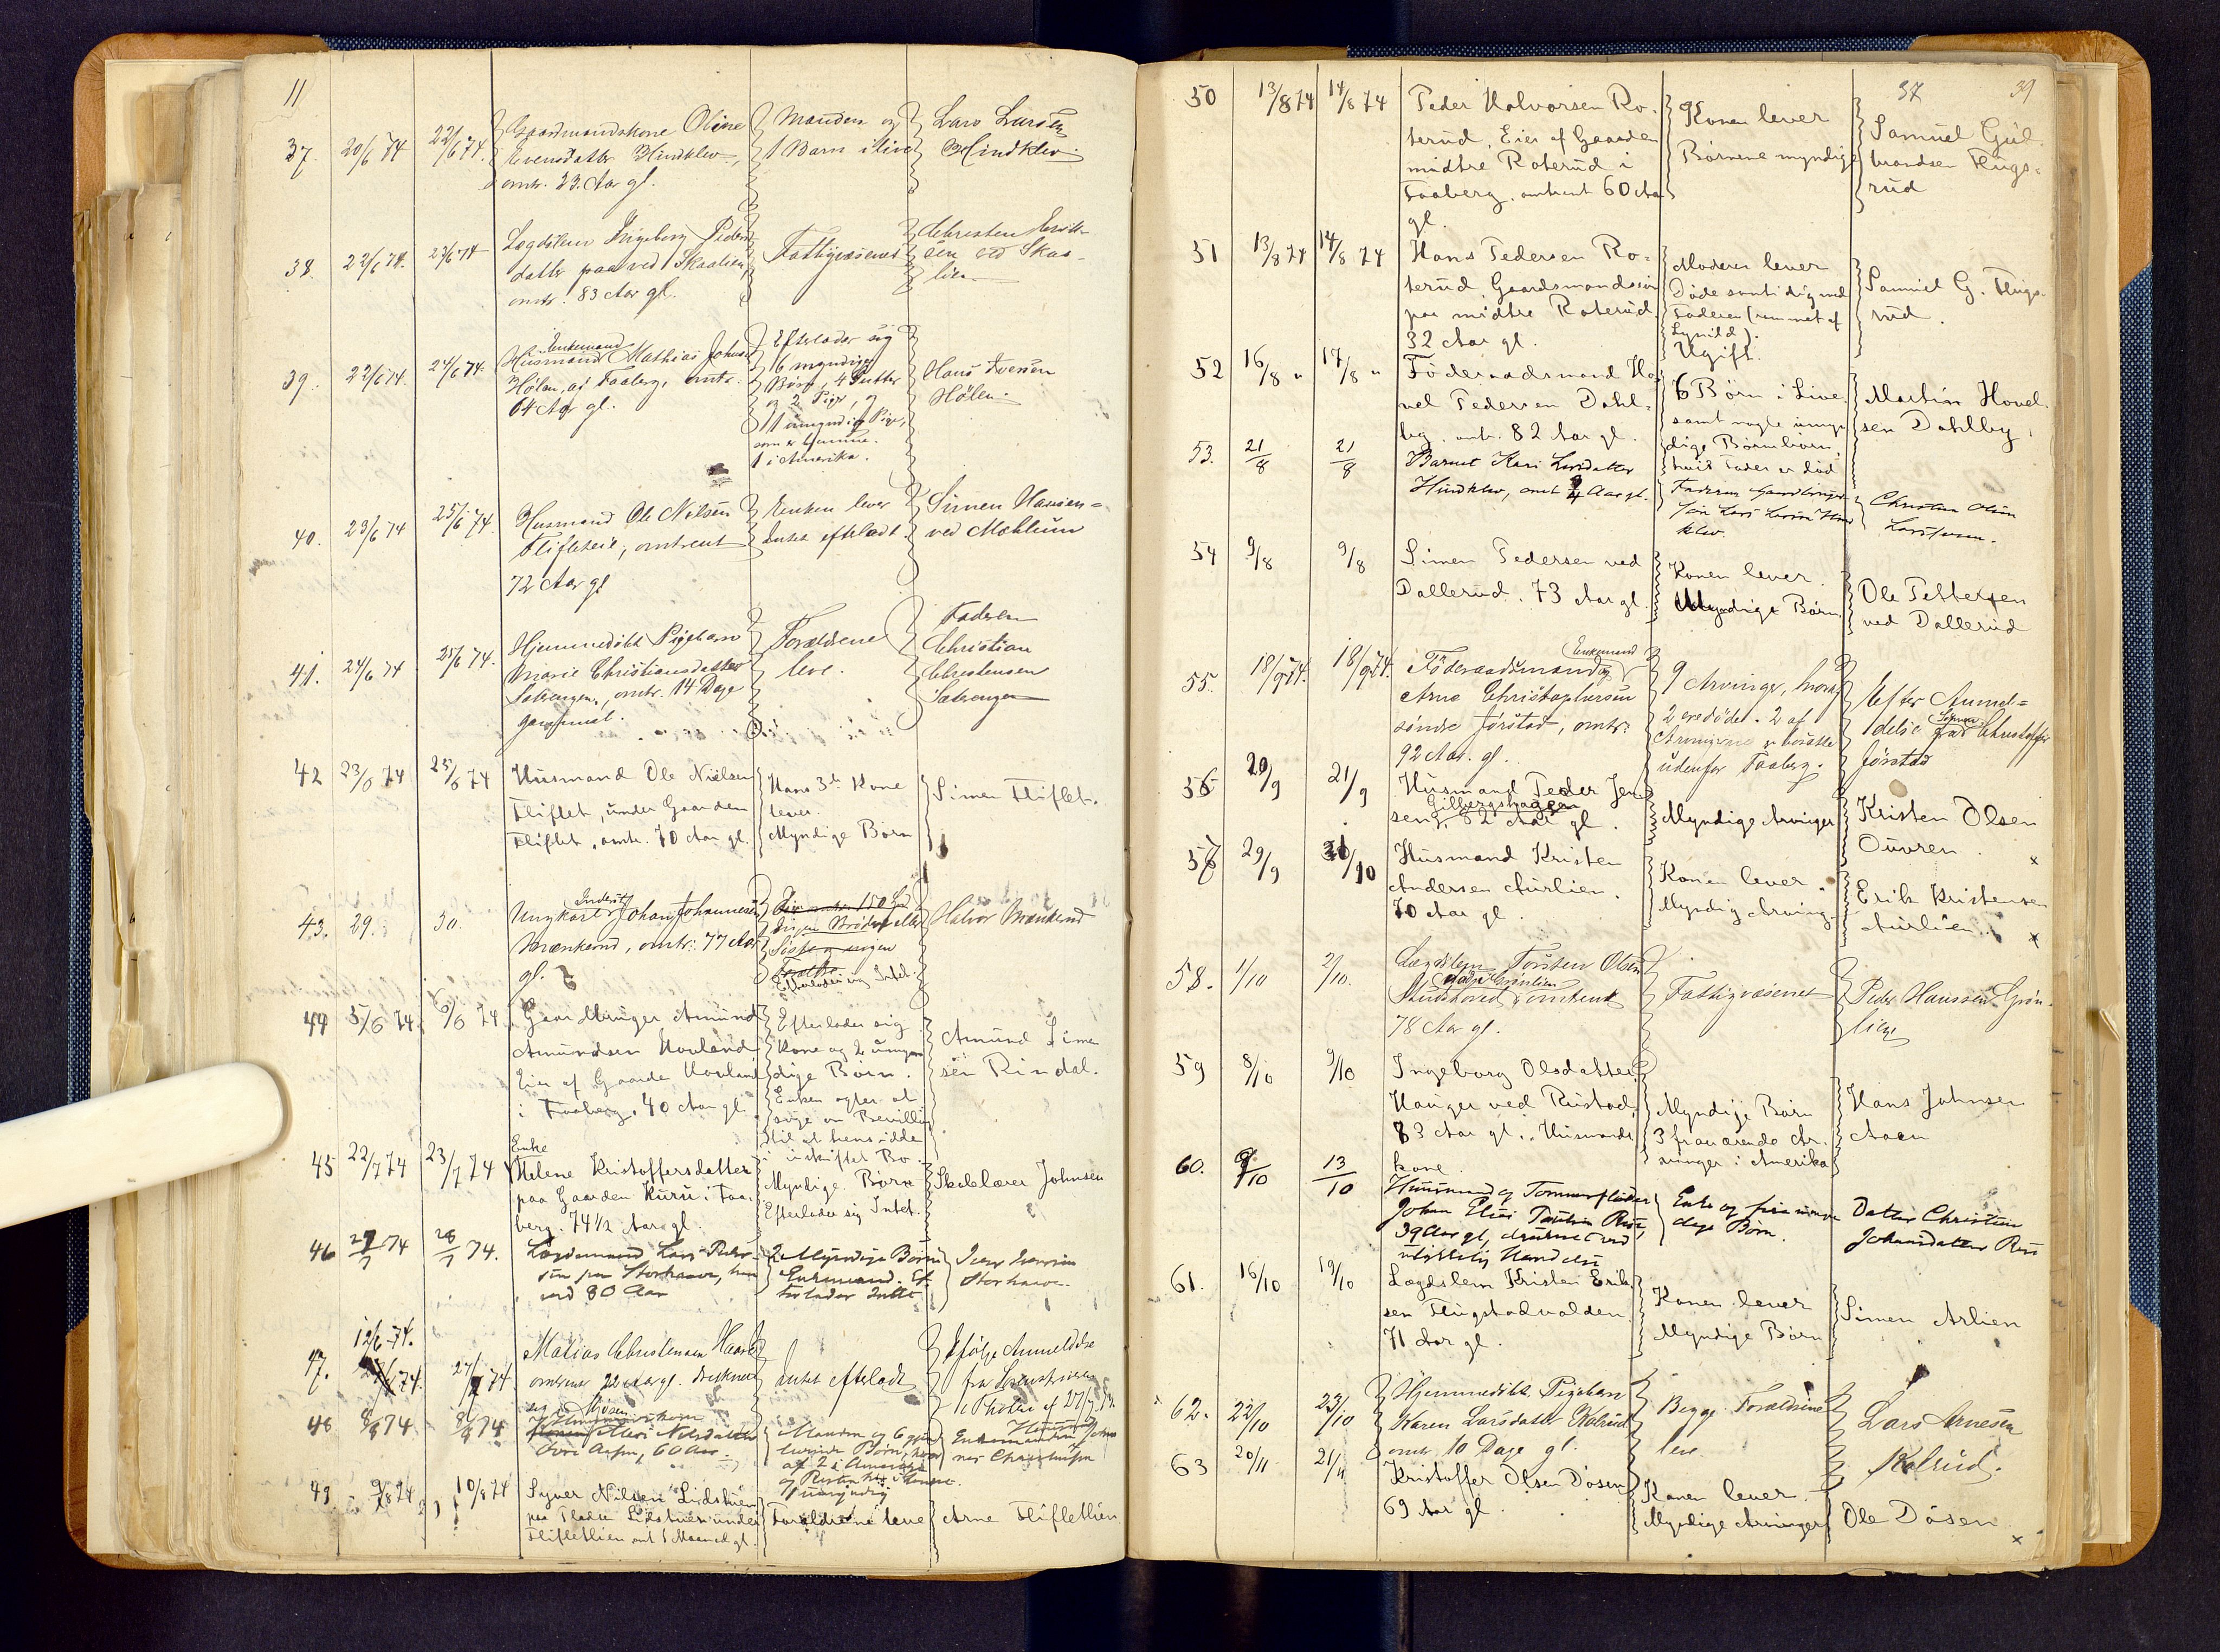 11
37. 20/6 74 22/6 74. Gaardmandskone Oline
Evensdatter Hindklev,
omtr. 23 Aar gl.
Manden og
1 Barn i live
Lars Larsen
Hindklev.
38. 22/6 74. 23/6 74 Lægdslem Ingeborg Peders
datter paa ved Skaalien,
omtr. 83 Aar gl.
Fattigvæsenet
Christen Erik-
sen ved Skaa-
lien
39. 22/6 74. 24/6 74. Enkemand
Husmand Mathias Johnsen
Hølen, af Faaberg, omtr.
64 Aar gl.
Efterlader sig
6 myndige
Børn, 4 Gutter
og 2 Piger, og
1 umyndig Pige,
som er hjemme.
1 i Amerika.
Hans Iversen
Hølen.
40. 23/6 74 25/6 74. Husmand Ole Nilsen
Flifleteie, omtrent
72 Aar gl
Enken lever
Intet efterladt.
Simen Hansen
ved Mæhlum
41. 24/6 74 25/6 74. Hjemmedøbt Pigebarn
Marie Christiansdatter
omtr. 14 Dage
gammel.
Forældrene
leve.
Faderen
Christian
Christensen
42 23/6 74 25/6 74 Husmand Ole Nielsen
Fliflet, under Gaarden
Fliflet, omtr. 70 Aar gl.
Hans 3die Kone
lever.
Myndige Børn
Simen Fliflet.
43. 29. 30. Inderst
Ungkarl Johan Johannesen
Brænkend, omtr. 77 Aar
gl.
Efterlader sig Intet.
Halvor Brænkend
44 5/6 74. 6/6 74. Gaardbruger Amund
Amundsen Hovland
Eier af Gaarde Hovland
i Faaberg. 40 Aar gl.
Efterlader sig
Kone og 2 umyn
dige Børn.
Enken agter at
søge om Bevilling
til at hensidde
i uskiftet Bo.
Amund Sime
sen Rindal.
45 22/7 74 23/7 74 Enke
Helene Kristoffersdatter
paa Gaarden Kuru i Faa-
berg. 74 1/2 Aar gl.
Myndige Børn
Efterlader sig Intet.
Skolelærer Johnsen
46 27/7 74 28/7 74. Lægdsmand Lars Peder-
sen paa Storhaave, hen
ved 80 Aar
2 Myndige Børn
Enkemand. Ef-
terlader Intet
Iver Iversen
Storhaave.
47. 12/6 74. 27/7 74 Matias Christensen Haave
omtrent 22 Aar gl. druknet
sig i Mjøsen
Intet efterladt
Ifølge Anmeldelse
fra Sognepræsten
48 8/8 74 8/8 74 Husmandskone
Mari Nilsdatter
60 Aar.
Manden og 6 gjen
levende Børn, hvor
af 2 i Amerika
1 umyndig
Enkemanden Johan
nes Christensen
49. 9/8 74 10/8 74 Syver Nilsen Lidstuen
paa Pladse Lidstuen under
Fliflethien omt 1 Maaned gl.
Forældrene leve
Arne Flifletlien
37 39
50 13/8 74 14/8 74 Peder Halvorsen Ro-
terud, Eier af Gaarden
midtre Roterud i
Faaberg, omtrent 60 Aar
gl.
Konen lever
Børnene myndige
Samuel Gul
brandsen Flugs-
rud
51 13/8 74 14/8 74 Hans Pedersen Ro-
terud, Gaardmandssøn
paa midtre Roterud.
32 Aar gl.
Moderen lever
Døde samtidig med
Faderen (rammet af
Lynild).
Ugift.
Samuel G. Flugs-
rud.
52 16/8 " 17/8 " Føderaadsmand Ho
vel Pedersen Dahl-
by, omtr. 82 Aar gl.
6 Børn i Live.
samt nogle umyn
dige Børnebørn,
hvis Fader er død
Martin Hovel
sen Dahlby.
53. 21/8 21/8 Barnet Kari Larsdatter
Hindklev, omt 4 Aar gl.
Faderen Gaardbruger
Lars Larsen Hind
klev.
Christian Olsen
54 9/8 9/8 Simen Pedersen ved
Dallerud. 73 Aar gl.
Konen lever.
Myndige Børn
Ole Pettersen
ved Dallerud
55. 18/9 74. 18/9 74. Føderaadsmand og Enkemand
Arne Christophersen
søndre Jørstad, omtr.
92 Aar gl.
9 Arvinger, hvoraf
2 ere døde. 2 af
Arvingerne er bosatte
udenfor Faaberg.
Efter Anmel-
delse fra Sønnen Christoffer
Jørstad
56 20/9 21/9 Husmand Peder Jen
sen Gilbergshagen, 82 Aar gl.
Myndige Arvinger
Kristen Olsen
Ouvren. x
57 29/9 1/10 Husmand Kristen
Andersen Aurlien.
70 Aar gl.
Konen lever.
Myndig Arving.
Erik Kristensen
Aurlien. x
58. 1/10 2/10. Lægdslem Torsten Olsen
Studshoved, omtrent
78 Aar gl.
Fattigvæsenet
Peder Hanssen Grøn-
lien
59 8/10 9/10 Ingeborg Olsdatter
Hauger ved Rustad,
83 Aar gl. Husmands
kone.
Myndige Børn
3 fraværende Ar-
vinger i Amerika
Hans Johnsen
Aaen
60. 9/10 13/10 Husmand og Tømmerfløder
Johan Elias Paulsen Rusti,
39 Aar gl, druknet ved
ulykkelig Hændelse
Enke og fire umyn
dige Børn.
Datter Christine
Johansdatter
61. 16/10 19/10 Lægdslem Kristen Erik
sen Flugstadvolden.
71 Aar gl.
Konen lever
Myndige Børn
Simen Arlien
62. 22/10 23/10 Hjemmedøbt Pigebarn
Karen Larsdatter Kolrud
omtr. 10 Dage gl.
Begge Forældrene
leve.
Lars Arnesen
Kolrud.
63 20/11 21/11 Kristoffer Olsen Døsen
69 Aar gl.
Konen lever.
Myndige Arvinger
Ole Døsen x